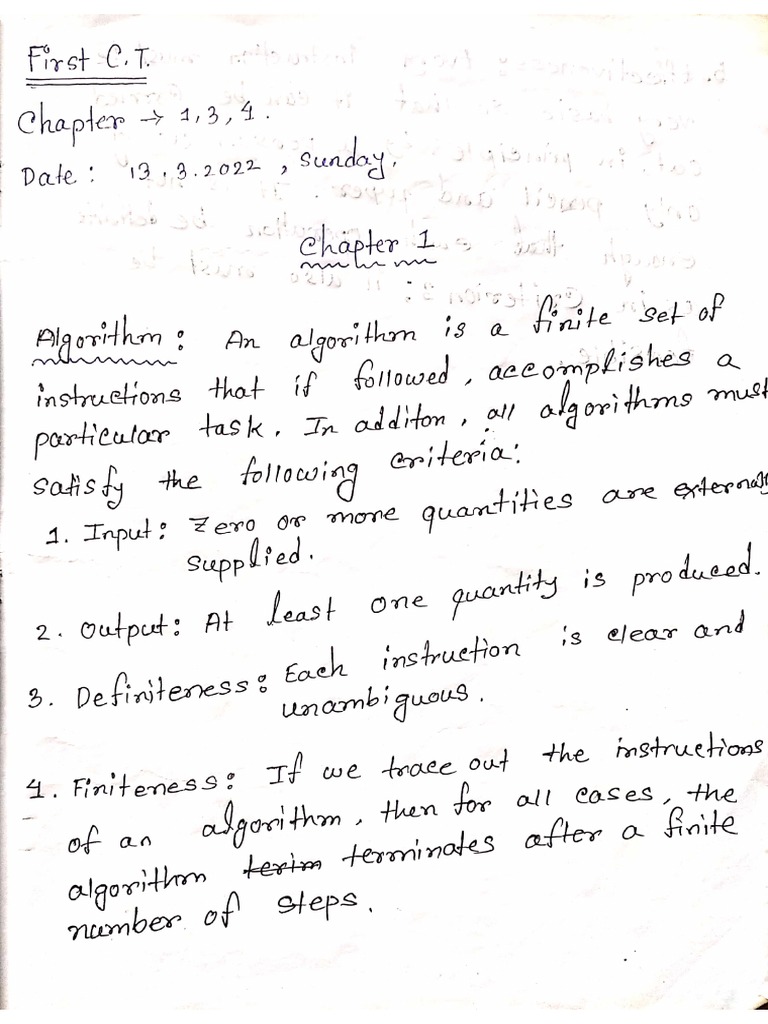 First C.T.
Chapter → 1, 3, 4.
Date: 13.3.2022, Sunday.
Chapter 1
Algorithm: An algorithm is a finite set of
instructions that if followed, accomplishes a
particular task. In additon, all algorithms must
satisfy the following criteria:
1. Input: Zero or more quantities are externally
supplied.
2. Output: At least one quantity is produced.
3. Definiteness: Each instruction is clear and
unambiguous.
4. Finiteness: If we trace out the instructions
of an algorithm, then for all cases, the
algorithm terim terminates after a finite
number of steps.